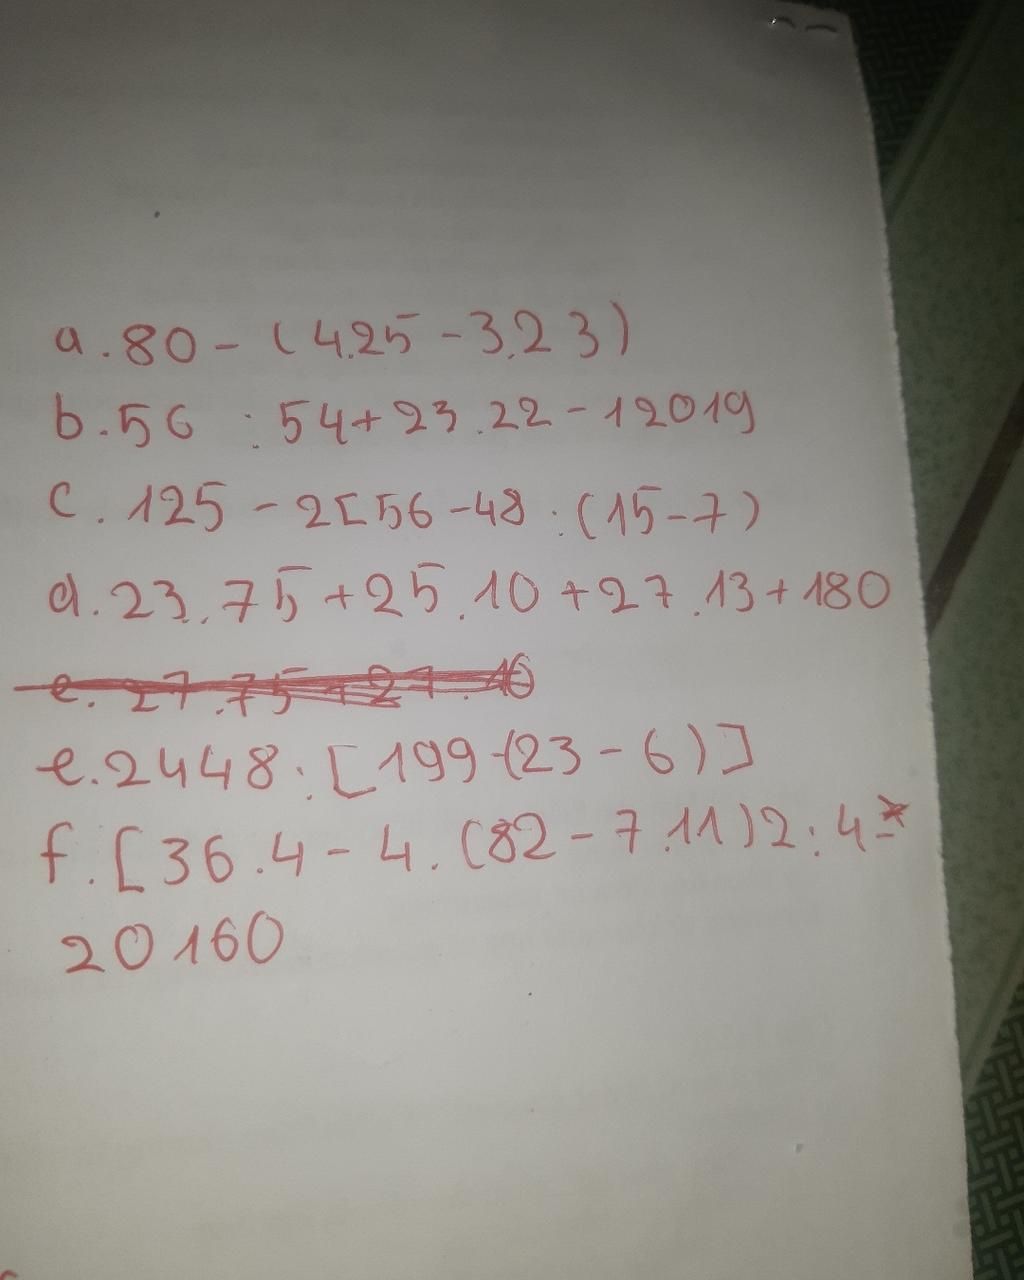 a. 80 - (4.25 - 3.23)
b. 56 : 54 + 23.22 - 12019
c. 125 - 2[56 - 48 : (15 - 7)
d. 23.75 + 25.10 + 27.13 + 180
e. 2448 : [199 - (23 - 6)]
f. [36.4 - 4.(82 - 7.11)2 : 4 -
20160